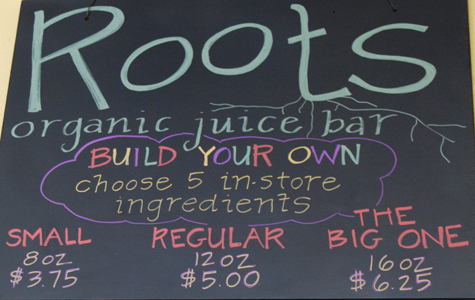 Roots
organic juice bar
BUILD YOUR OWN
choose 5 in-store
ingredients
SMALL
8 oz
$3.75
REGULAR
12 OZ
$5.00
THE
BIG ONE
16 OZ
$6.25